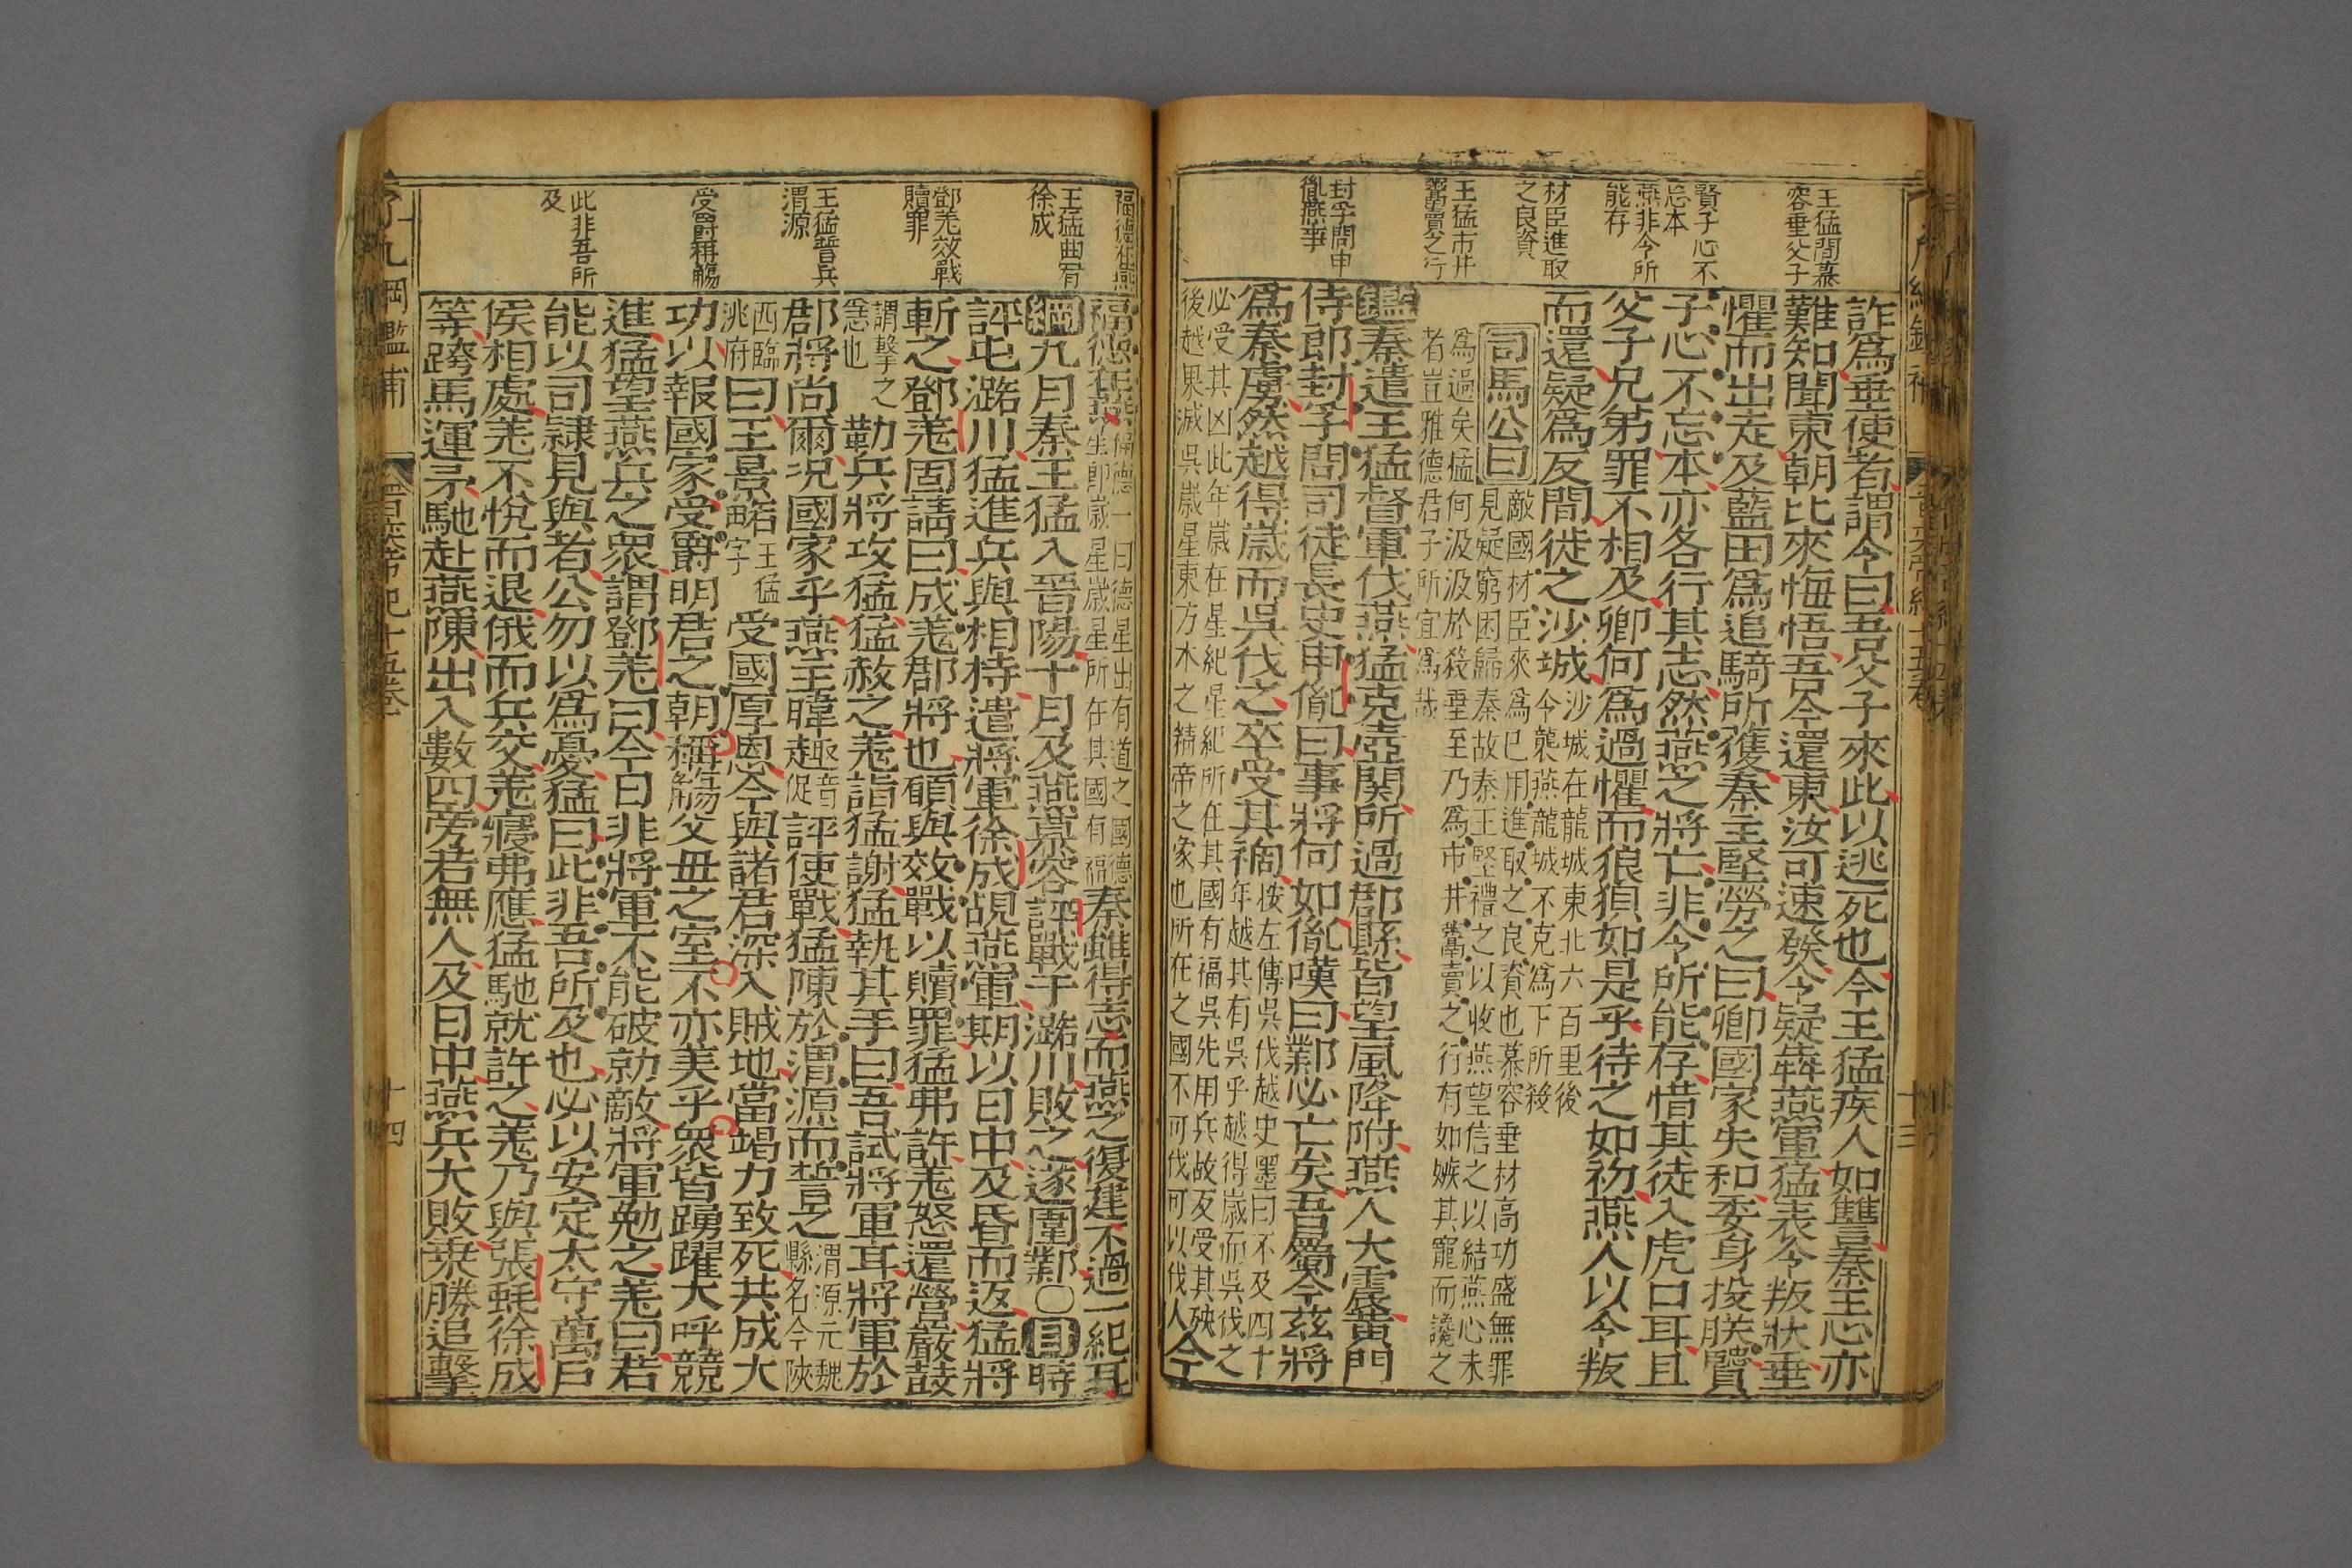 王猛間慕
容垂父子
賢子心不
忘本
燕非今所
能存
材臣進取
之良資
王猛市井
鬻賣之行
封孚問申
胤燕事
詐爲垂使者謂令曰吾父子來此以逃死也今王猛疾人如讐秦王心亦
難知聞東朝比來悔悟吾今還東汝可速發令疑犇燕軍猛表令叛狀垂
懼而出走及藍田爲追騎所獲秦主堅勞之曰卿國家失和委身投朕賢
子心不忘本亦各行其志然燕之將亡非令所能存惜其徒入虎口耳且
父子兄弟罪不相及卿何爲過懼而狼狽如是乎待之如初燕人以令叛
而還疑爲反間徙之沙城
沙城在龍城東北六百里後
令襲燕龍城不克爲下所殺
司馬公曰
敵國材臣來爲巳用進取之良資也慕容垂材高功盛無罪
見疑窮困歸秦故秦王堅禮之以收燕望信之以結燕心未
爲過矣猛何汲汲於殺垂至乃爲市井鬻賣之行有如嫉其寵而讒之
者豈雅德君子所宜爲哉
鑑秦遣王猛督軍伐燕猛克壺関所過郡縣皆望風降附燕人大震黃門
侍郎封孚問司徒長史申胤曰事將何如胤嘆曰鄴必亡矣吾屬今茲將
爲秦虜然越得歲而吳伐之卒受其禍
按左傳吳伐越史墨曰不及四十
年越其有吳乎越得歲而吳伐之
必受其凶此年歲在星紀星紀所在其國有福吳先用兵故反受其殃
後越果滅吳歲星東方木之精帝之象也所在之國不可伐可以伐人
今
十三
福德在燕
王猛曲宥
徐成
鄧羌效戰
贖罪
王猛誓兵
渭源
受爵稱觴
此非吾所
及
福德在燕
秦雖得志而燕之復建不過一紀耳
綱九月秦王猛入晉陽十月及燕慕容評戰于潞川敗之遂圍鄴○目時
評屯潞川猛進兵與相持遣將軍徐成覘燕軍期以日中及昏而返猛將
斬之鄧羌固請曰成羌郡將也願與效戰以贖罪猛弗許羌怒還營嚴鼓
謂擊之
急也
勒兵將攻猛猛赦之羌詣猛謝猛執其手曰吾試將軍耳將軍於
郡將尚爾況國家乎燕主暐趣
音
促
評使戰猛陳於渭源而誓之
渭源元魏
縣名今陜
西臨
洮府
曰王景畧
王猛
字
受國厚恩今與諸君深入賊地當竭力致死共成大
功以報國家受爵明君之朝稱觴父毋之室不亦美乎衆皆踴躍大呼競
進猛望燕兵之衆謂鄧羌曰今日非將軍不能破勍敵將軍勉之羌曰若
能以司隷見與者公勿以爲憂猛曰此非吾所及也必以安定太守萬戶
侯相處羌不悅而退俄而兵交羌寢弗應猛馳就許之羌乃與張蚝徐成
等跨馬運矛馳赴燕陳出入數四旁若無人及日中燕兵大敗乘勝追擊
十四